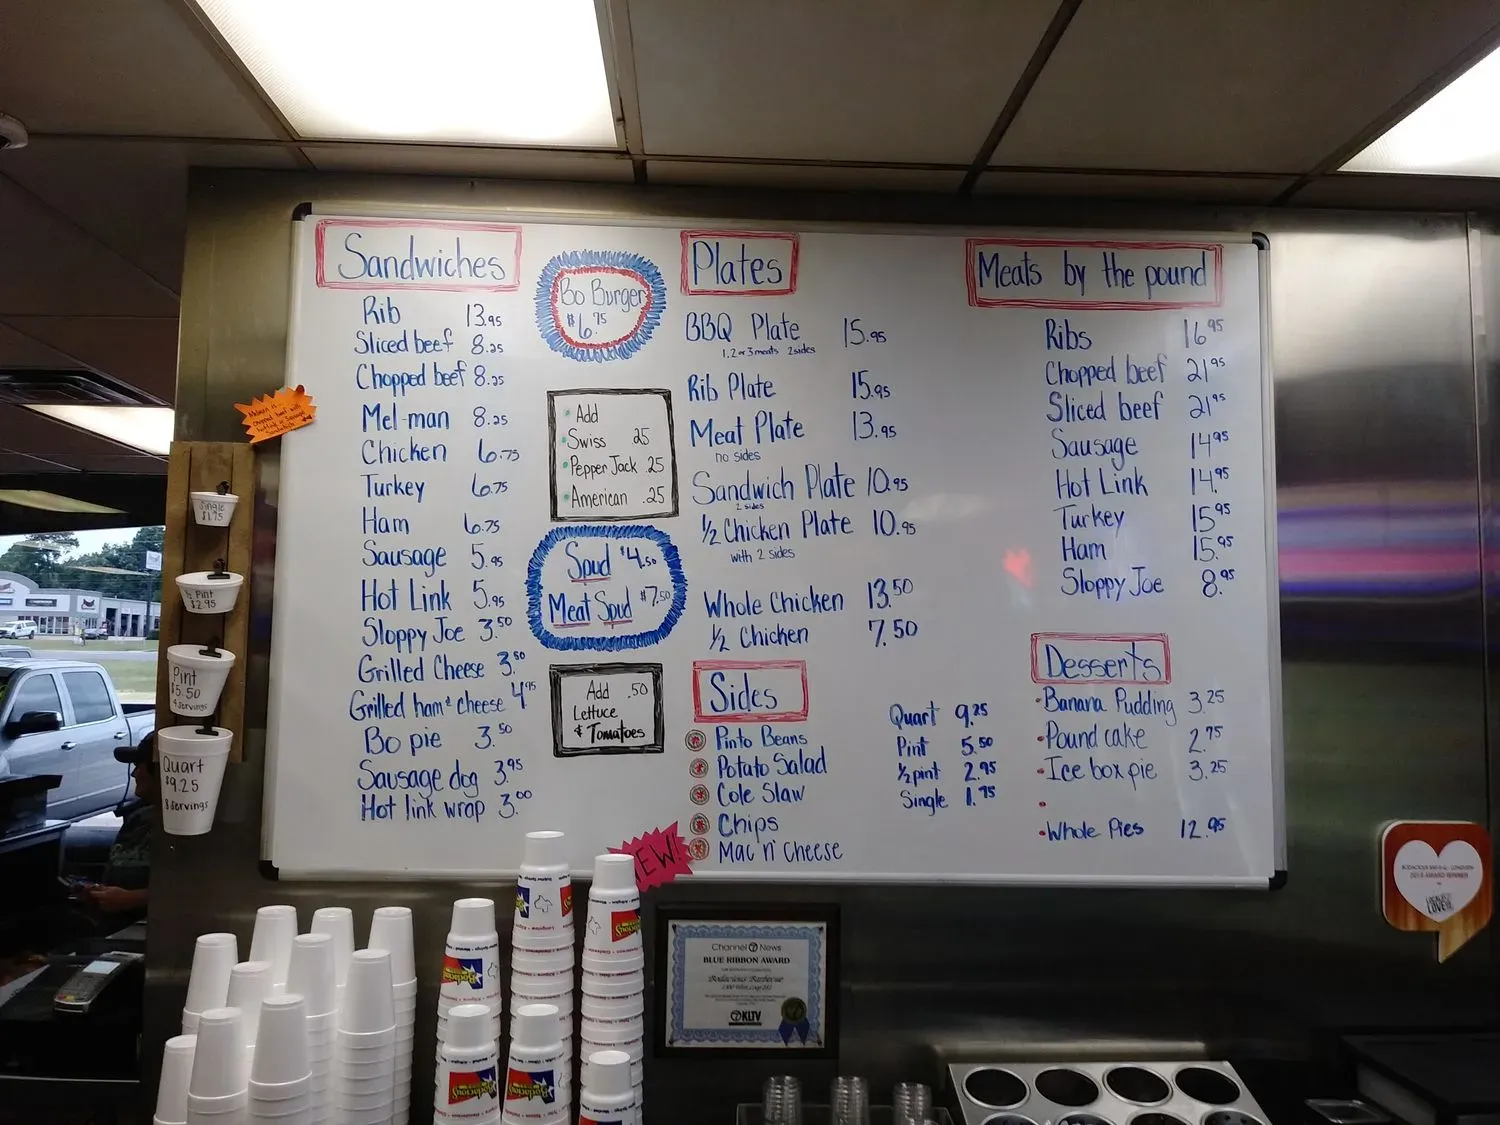 Sandwiches
Rib 13.95
Sliced beef 8.25
Chopped beef 8.25
Mel-man 8.25
Chicken 6.75
Turkey 6.75
Ham 6.75
Sausage 5.95
Hot Link 5.95
Sloppy Joe 3.50
Grilled Cheese 3.50
Grilled ham & cheese 4.95
Bo pie 3.50
Sausage dog 3.95
Hot link wrap 3.00
Bo Burger
$6.75
Add
Swiss 25
Pepper Jack .25
American .25
Spud $4.50
Meat Spud $7.50
Add .50
Lettuce
& Tomatoes
Plates
BBQ Plate 15.95
1,2 or 3 meats 2 sides
Rib Plate 15.95
Meat Plate 13.95
no sides
Sandwich Plate 10.95
2 sides
1/2 Chicken Plate 10.95
with 2 sides
Whole Chicken 13.50
1/2 Chicken 7.50
Sides
Pinto Beans
Potato Salad
Cole Slaw
Chips
Mac n' Cheese
Quart 9.25
Pint 5.50
1/2 pint 2.95
Single 1.75
Meats by the pound
Ribs 16.95
Chopped beef 21.95
Sliced beef 21.95
Sausage 14.95
Hot Link 14.95
Turkey 15.95
Ham 15.95
Sloppy Joe 8.95
Desserts
Banana Pudding 3.25
Pound cake 2.75
Ice box pie 3.25
Whole Pies 12.95
Single
$1.75
1/2 Pint
$2.95
Pint
$5.50
4 servings
Quart
$9.25
8 servings
NEW!
Channel 7 News
BLUE RIBBON AWARD
Bodacious Barbecue
KLTV
Bodacious